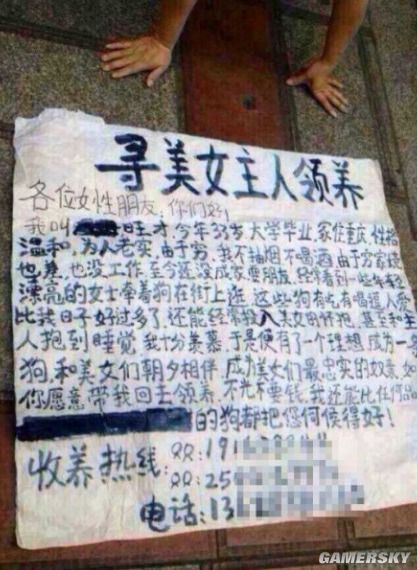 寻美女主人领养
各位女性朋友:你们好!
我叫 旺才 今年33岁 大学毕业,家住重庆,性格
温和,为人老实,由于穷,我不抽烟不喝酒,由于家
也差,也没工作,至今还没成家,要朋友,经常看到一些年
漂亮的女士牵着狗在街上逛,这些狗有吃有喝逗人爱
比我日子好过多了,还能经常投入美女的怀抱,甚至和
人抱到睡觉,我十分羡慕,于是便有了一个理想,成为一
狗,和美女们朝夕相伴,成为美女们最忠实的奴
你愿意带我回去领养,不光不要钱,我还能比任何
的狗都把您伺候得好!
收养热线: QQ:191
QQ:25
电话:13
GAMERSKY